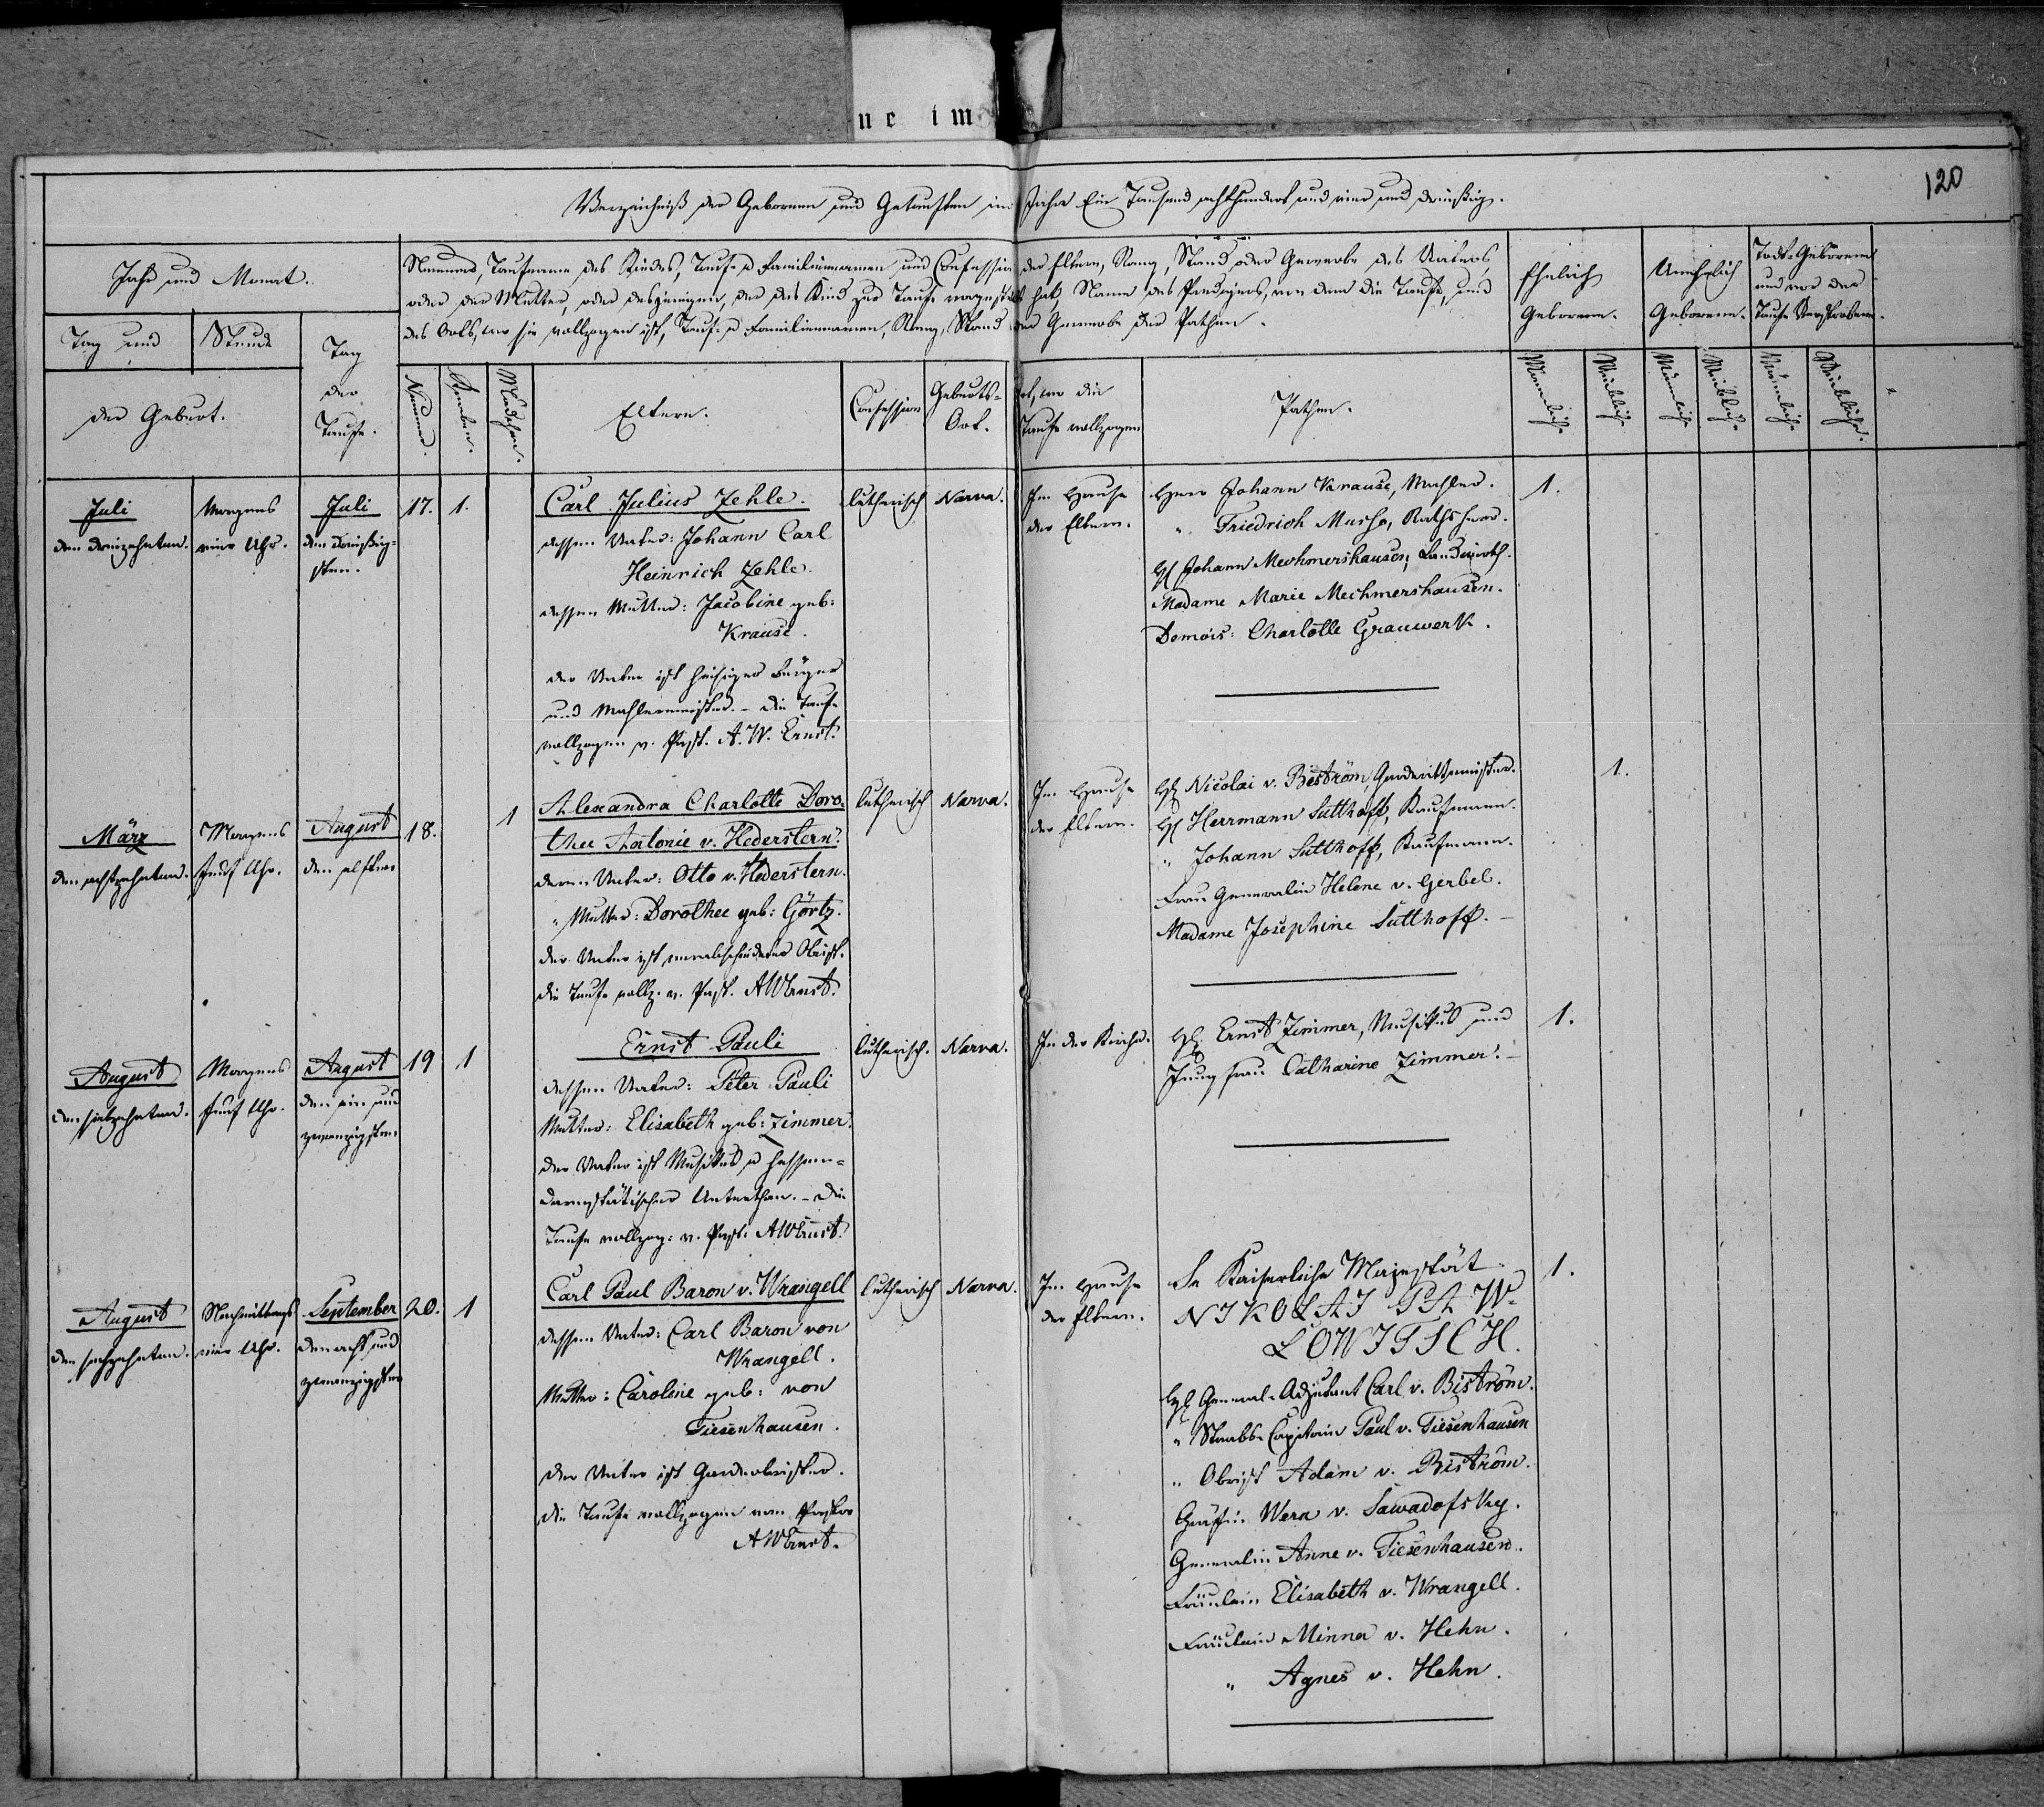 ne im
120
Verzeichniß der Geborenen und Getauften im Jahre Ein Tausend achthundert und vier und dreißig.
Jahr und Monat.
Nummer, Taufname des Kindes, Tauf- u Familiennamen und Confession der Eltern, Rang, Stand, oder Gewerbe des Vaters,
oder der Mutter, oder desjenigen, der das Kind zur Taufe vorgestellt hat, Name des Predigers, von dem die Taufe, und
des Orts, wo sie vollzogen ist, Tauf- u Familiennamen, Rang, Stand oder Gewerbe der Pathen.
Ehelich
Geborene.
Unehelich
Geborene.
Todt-Geborene
und vor der
Taufe Verstorbene.
Tag und
Stunde
der Geburt.
Tag
der
Taufe.
Nummer.
Knaben.
Mädchen.
Eltern.
Confession
Geburts-
Ort.
Ort, wo die
Taufe vollzogen
Pathen.
Männlich.
Weiblich.
Männlich.
Weiblich.
Männliche
Weibliche.
Juli
den dreizehnten.
Morgens
vier Uhr.
Juli
den dreißig-
sten.
17.
1.
Carl Julius Zehle.
dessen Vater: Johann Carl
Heinrich Zehle.
dessen Mutter: Jacobine geb:
Krause.
der Vater ist hiesiger Bürger
und Mahlermeister. - die Taufe
vollzogen v. Past. A. W. Ernst.
lutherisch
Narva.
Im Hause
der Eltern.
Herr Johann Krause, Mahler.
" Friedrich Musso, Rathsherr.
H Johann Mechmershausen, Landwirth.
Madame Marie Mechmershausen.
Demois: Charlotte Grauwerk.
1.
März
den achtzehnten.
Morgens
fünf Uhr.
August
den elften
18.
1
Alexandra Charlotte Doro-
thee Antonie v. Hederstern.
deren Vater: Otto v. Hederstern.
" Mutter: Dorothee geb: Görtz.
der Vater ist verabschiedeter Obrist.
die Taufe vollz. v. Past. AWErnst.
lutherisch
Narva.
Im Hause
der Eltern.
H Nicolai v. Biström, Garderittmeister.
H Herrmann Sutthoff, Kaufmann.
" Johann Sutthoff, Kaufmann.
Frau Generalin Helene v. Gerbel.
Madame Josephine Sutthoff. -
1.
August
den siebzehnten.
Morgens
fünf Uhr.
August
den ein und
zwanzigsten
19
1
Ernst Pauli
dessen Vater: Peter Pauli
Mutter: Elisabeth geb: Zimmer.
der Vater ist Musikus u Hessen-
darmstätischer Unterthan. - die
Taufe vollzog: v. Past. AWErnst.
lutherisch.
Narva.
In der Kirche.
H Ernst Zimmer, Musikus und
Jungfrau Catharine Zimmer. -
1.
August
den sechzehnten.
Nachmittags
vier Uhr.
September
den acht und
zwanzigsten
20.
1
Carl Paul Baron v. Wrangell
dessen Vater: Carl Baron von
Wrangell.
Mutter: Caroline geb: von
Tiesenhausen.
der Vater ist Gardeobrister.
die Taufe vollzogen vom Pastor
AWErnst.
lutherisch
Narva.
Im Hause
der Eltern.
Se Kaiserliche Majestät
NIKOLAI PAW-
LOWITSCH.
H General-Adjutant Carl v. Biström.
" Staabs-Capitain Paul v. Tiesenhausen
" Obrist Adam v. Biström.
Gräfin Wera v. Sawadofsky.
Generalin Anne v. Tiesenhausen.
Fräulein Elisabeth v. Wrangell.
Fräulein Minna v. Hehn.
" Agnes v. Hehn.
1.